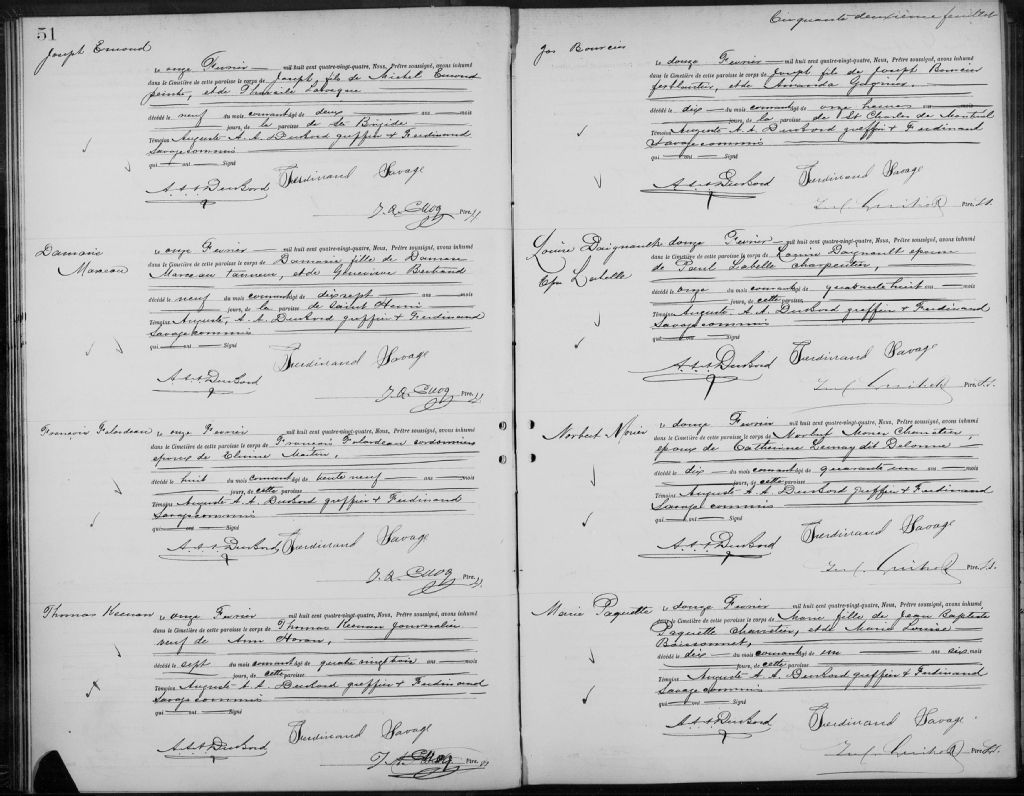 51
Joseph Emond
Le onze Fevrier — mil huit cent quatre-vingt-quatre, Nous, Prêtre soussigné, avons inhumé
dans le Cimetière de cette paroisse le corps de Joseph, fils de Michel Emond
peintre, et de Philomène
décédé le neuf du mois courant âgé de deux ans — mois
— jours, de la paroisse de Ste Brigide
Témoins Auguste A. A. DuBord greffier & Ferdinand
Savage commis
qui — ont — Signé
A. A. A. DuBord Ferdinand Savage
J. A. Cuoq Ptre.
Damarie
Marceau
Le onze Fevrier — mil huit cent quatre-vingt-quatre, Nous, Prêtre soussigné, avons inhumé
dans le Cimetière de cette paroisse le corps de Damarie fille de Damase
Marceau tanneur, et de Genevieve Bertrand
décédé le neuf du mois courant âgé de dix sept — ans — mois
— jours, de la paroisse de Saint Henri
Témoins Auguste, A. A. DuBord greffier & Ferdinand
Savage commis
qui — ont — Signé
A. A. A. DuBord Ferdinand Savage
J. A. Cuoq Ptre.
Francois Falardeau
Le onze Fevrier mil huit cent quatre-vingt-quatre, Nous, Prêtre soussigné, avons inhumé
dans le Cimetière de cette paroisse le corps de François Falardeau cordonnier
epoux de Martin,
décédé le huit du mois courant âgé de trente neuf — ans — mois
— jours, de cette paroisse
Témoins Auguste A. A. DuBord greffier & Ferdinand
Savage commis
qui — ont — Signé
A. A. A. DuBord Ferdinand Savage
J. A. Cuoq Ptre.
Thomas Keenan
Le onze Fevrier mil huit cent quatre-vingt-quatre, Nous, Prêtre soussigné, avons inhumé
dans le Cimetière de cette paroisse le corps de Thomas Keenan journalier
veuf de Ann Horan,
décédé le sept du mois courant âgé de quatre vingt trois ans — mois
— jours, de cette paroisse
Témoins Auguste A. A. DuBord greffier & Ferdinand
Savage commis
qui — ont — Signé
A. A. A. DuBord Ferdinand Savage
J. A. Cuoq Ptre.
Cinquante deuxième feuillet
Jos Bourcier
Le douze Fevrier — mil huit cent quatre-vingt-quatre, Nous, Prêtre soussigné, avons inhumé
dans le Cimetière de cette paroisse le corps de Joseph fils de Joseph Bourcier
ferblantier, et de Amanda Gagnier,
décédé le dix — du mois courant âgé de onze heures ans — mois
— jours, de la paroisse de St Charles de Montreal
Témoins Auguste A. A. DuBord greffier & Ferdinand
Savage commis
qui — ont — Signé
A. A. A. DuBord Ferdinand Savage
Ptre. S.S.
Louise Daignault
Epse Labelle
Le douze Fevrier — mil huit cent quatre-vingt-quatre, Nous, Prêtre soussigné, avons inhumé
dans le Cimetière de cette paroisse le corps de Louise Daignault epouse
de Paul Labelle charpentier,
décédé le onze du mois courant âgé de quarante huit ans — mois
— jours, de cette paroisse
Témoins Auguste A. A. DuBord greffier & Ferdinand
Savage commis
qui — ont — Signé
A. A. A. DuBord Ferdinand Savage
Ptre. S.S.
Norbert Morier
Le douze Fevrier mil huit cent quatre-vingt-quatre, Nous, Prêtre soussigné, avons inhumé
dans le Cimetière de cette paroisse le corps de Norbert Morier Charretier,
epoux de Catherine Lemay dit Delorme
décédé le dix — du mois courant âgé de quarante un — ans — mois
— jours, de cette paroisse
Témoins Auguste A. A. DuBord greffier & Ferdinand
Savage commis
qui — ont — Signé
A. A. A. DuBord Ferdinand Savage
Ptre. S.S.
Marie Paquette
Le douze Fevrier mil huit cent quatre-vingt-quatre, Nous, Prêtre soussigné, avons inhumé
dans le Cimetière de cette paroisse le corps de Marie fille de Jean Baptiste
Paquette charretier, et de Marie Louise
Boissonnet,
décédé le dix — du mois courant âgé de un — ans six mois
— jours, de cette paroisse
Témoins Auguste A. A. DuBord greffier & Ferdinand
Savage commis
qui — ont — Signé
A. A. A. DuBord Ferdinand Savage
Ptre. S.S.